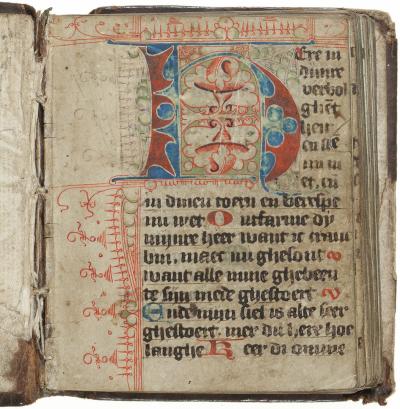 Here in
dinre
verbol
ghēt
hen
en sē
mi in
et, in
in dinen toern en berespe
mi niet Ontfarme dÿ
mÿnre heer want ic cranc
bin, maec mi ghesont
want alle mine ghebeen
te sijn mede ghestoert
Ende mijn siel is alte seer
ghestoert. mer du here hoe
langhe Keer di omme